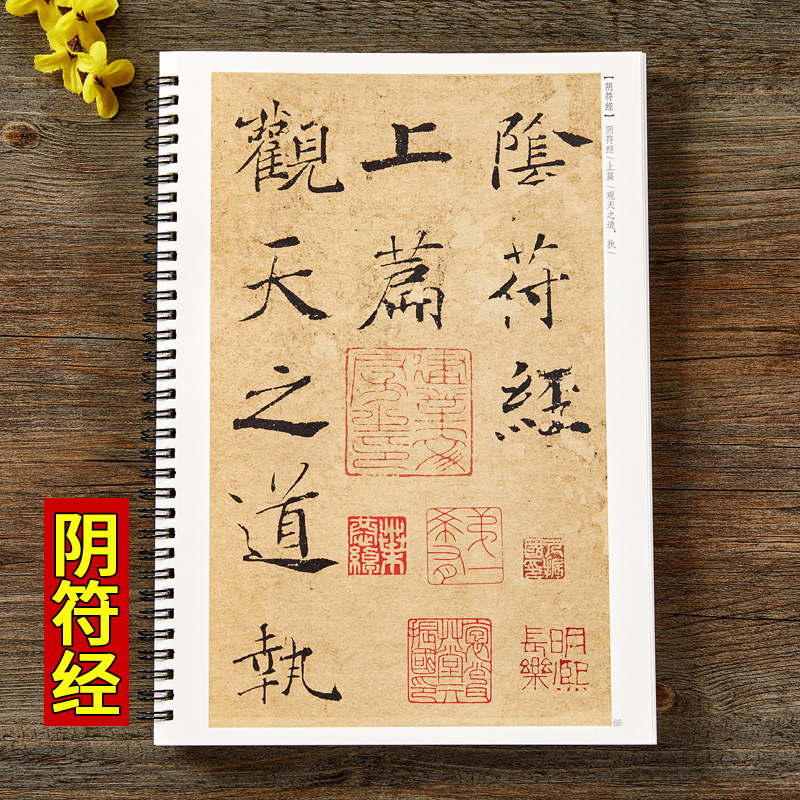 【阴符经】 阴符经/上篇/观天之道、执/
陰符經
上篇
觀天之道執
建業文房之印
68
阴符经